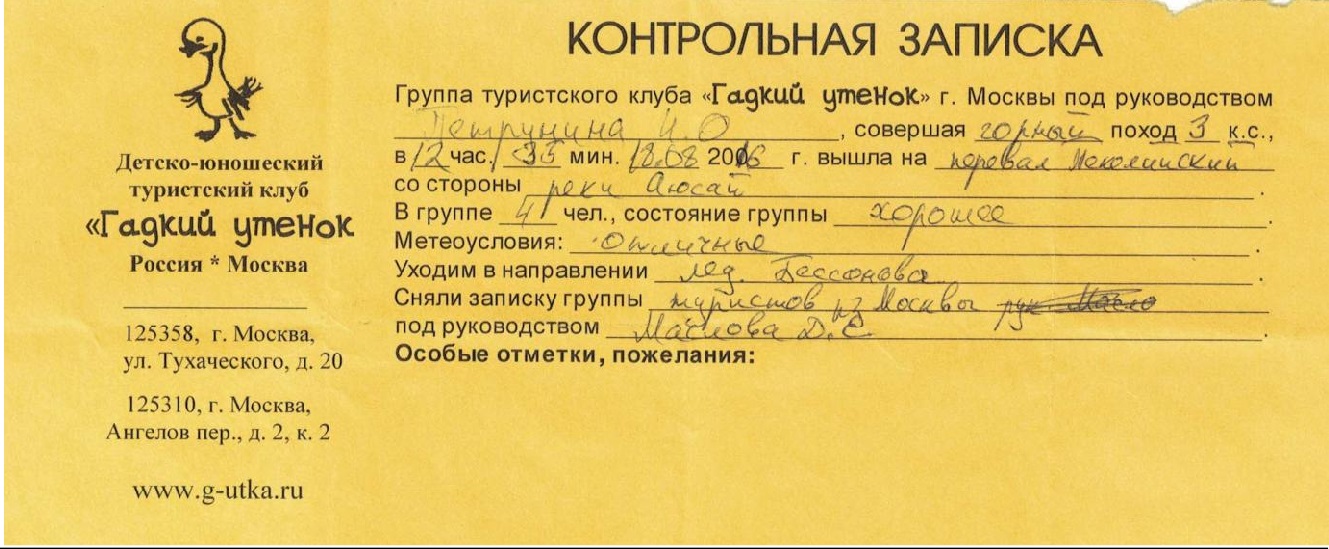 Детско-юношеский
туристский клуб
«Гадкий утенок
Россия * Москва
125358, г. Москва,
ул. Тухаческого, д. 20
125310, г. Москва,
Ангелов пер., д. 2, к. 2
www.g-utka.ru
КОНТРОЛЬНАЯ ЗАПИСКА
Группа туристского клуба «Гадкий утенок» г. Москвы под руководством
Петрунина И.О, совершая горный поход 3 к.с.,
в 12 час. 35 мин. 18.08 2016 г. вышла на перевал
со стороны реки Аюсай.
В группе 4 чел., состояние группы хорошее.
Метеоусловия: Отличные.
Уходим в направлении лед. Бессонова.
Сняли записку группы туристов из Москвы
под руководством Маслова Д.Е.
Особые отметки, пожелания: